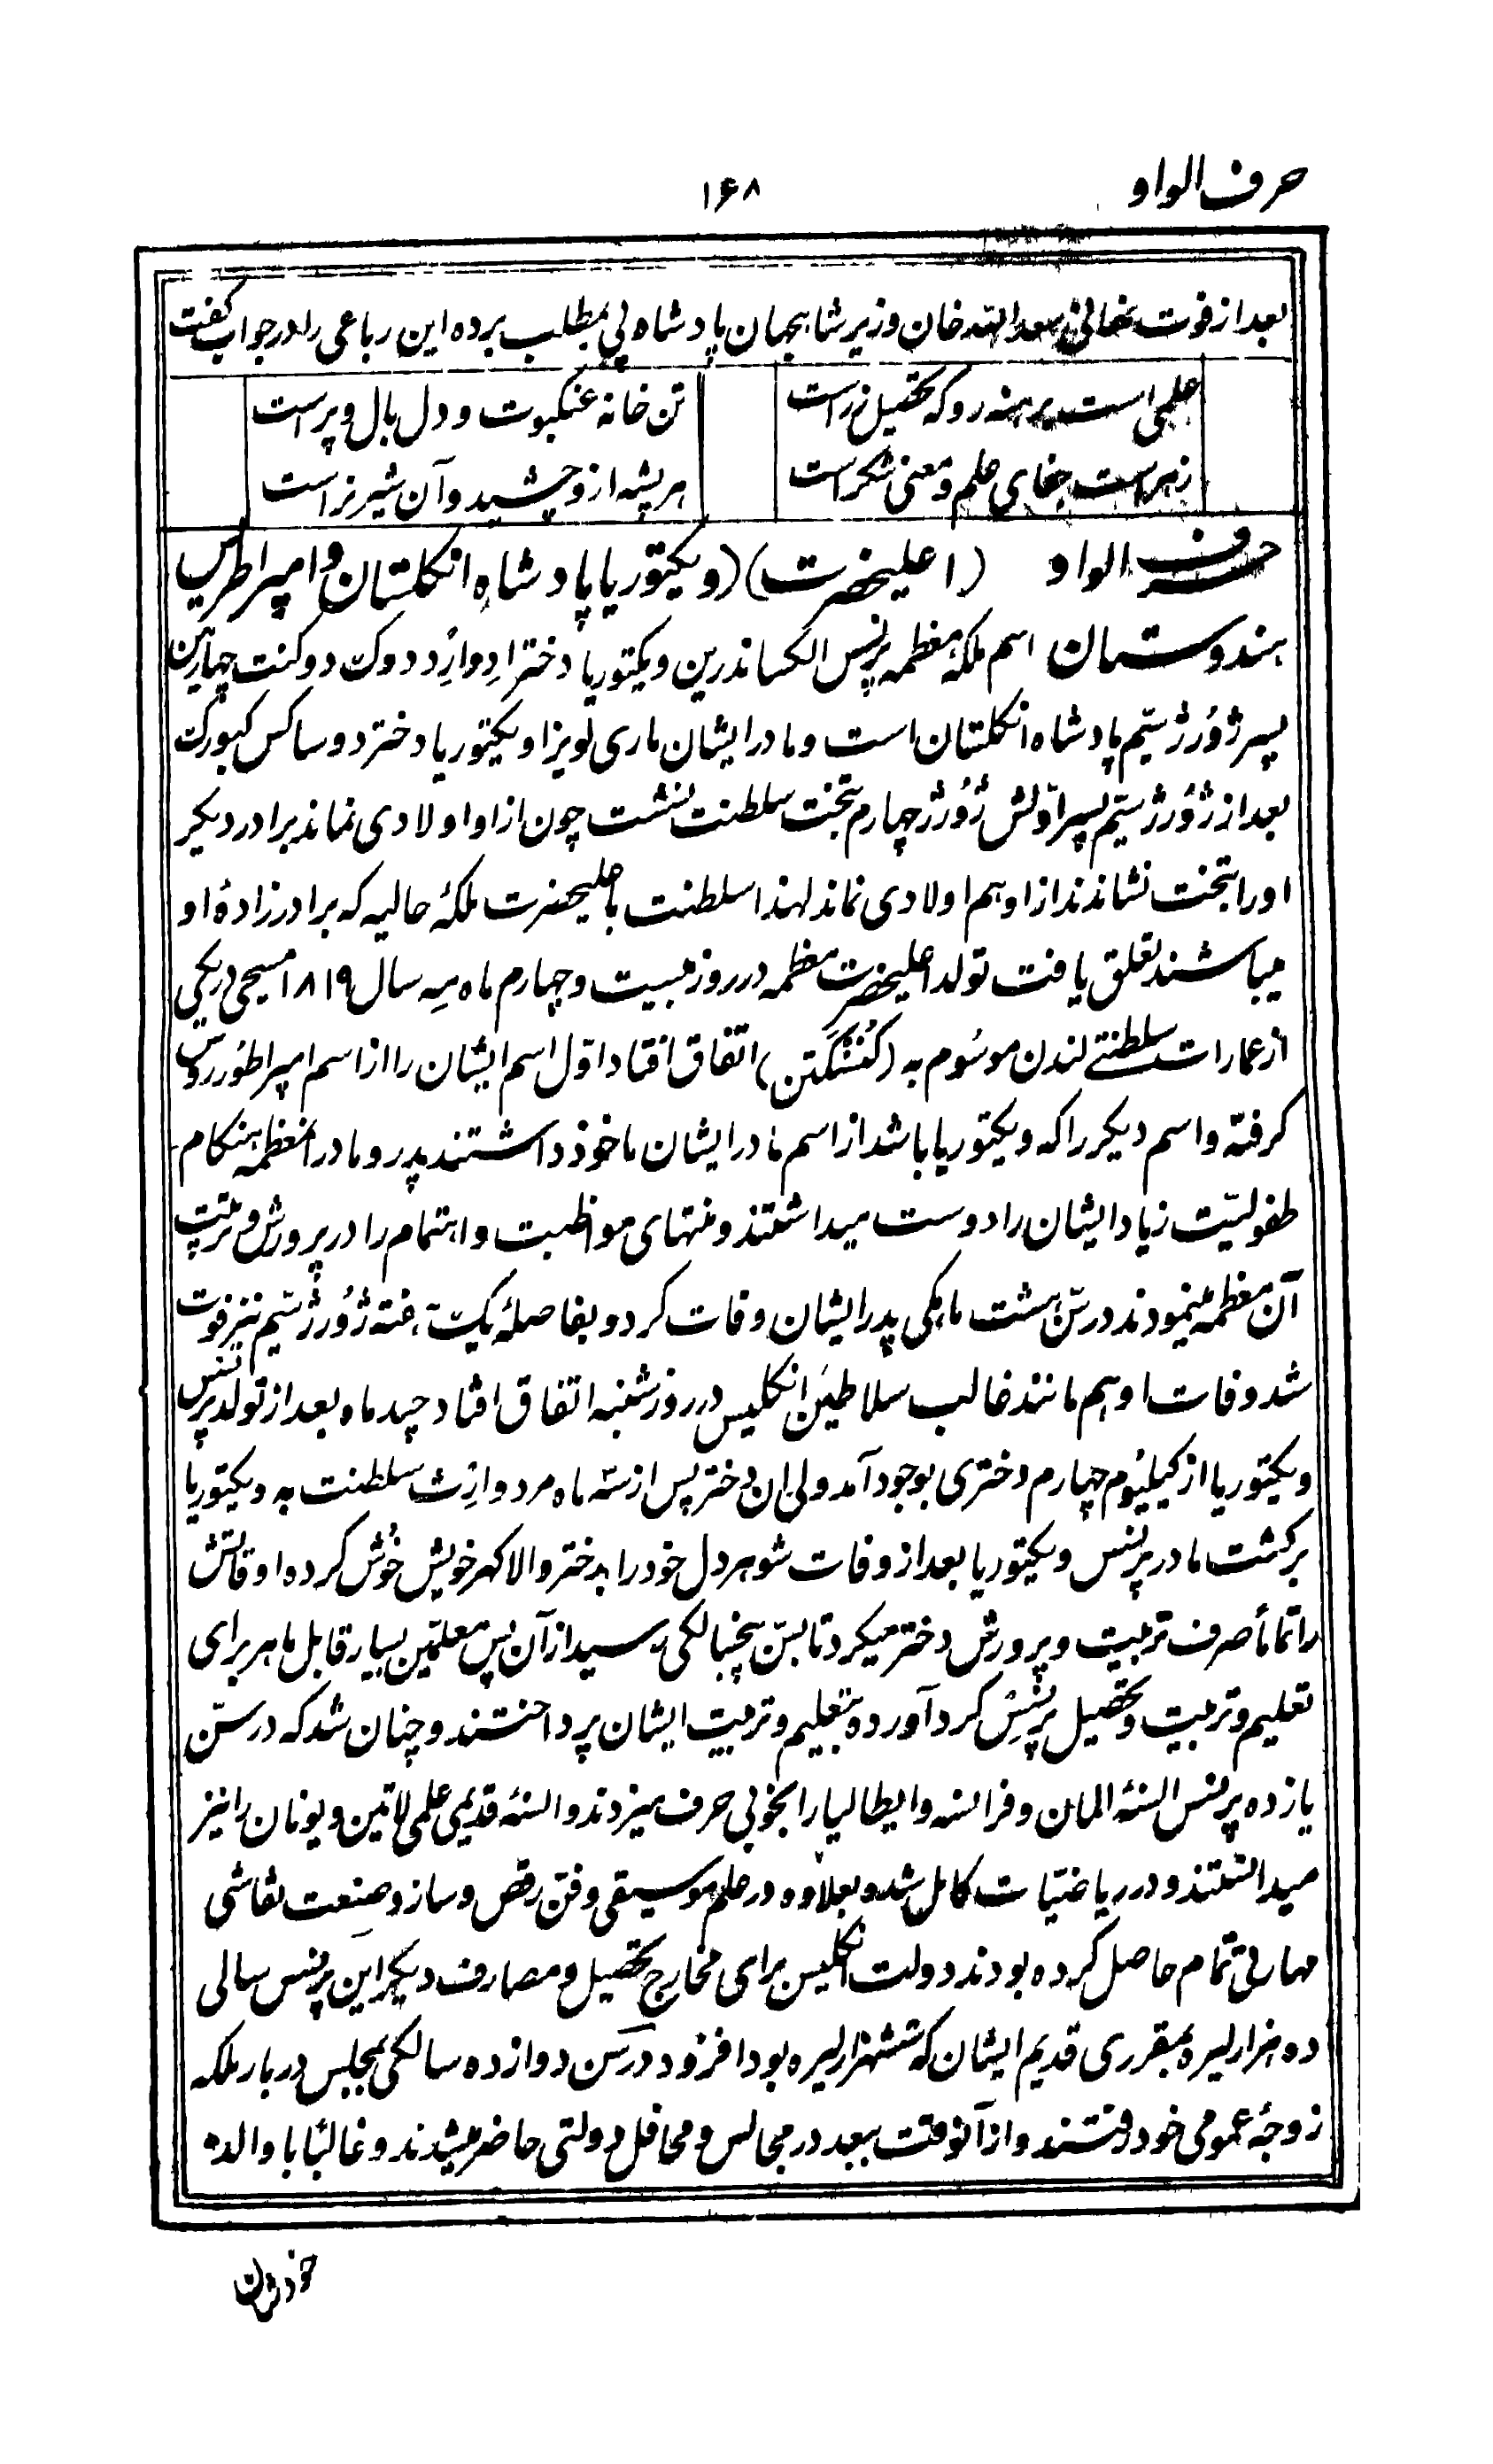 حرف الواو
۱۶۸
بعد از فوت سعدالله خان وزیر شاهجهان پادشاه پی بمطلب برده این رباعی را در جواب گفت
علمی است برهنه رو که تحصیل زر است
تن خانهٔ عنکبوت و دل بال و پر است
زهر است جفای علم و معنی شکر است
هر پشه ازو چشید و آن شیر نر است
حرف الواو (اعلیحضرت) (ویکتوریا پادشاه انگلستان و امپراطریس
هندوستان اسم ملکهٔ معظمه پرنس الکساندرین ویکتوریا دختر ادوارد دوک دوکنت چهارمین
پسر ژورژ سیّم پادشاه انگلستان است و مادر ایشان ماری لویزا ویکتوریا دختر دوساکس کبورک
بعد از ژورژ سیّم پسر اوّلش ژورژ چهارم بتخت سلطنت نشست چون از او اولادی نماند برادر دیگر
او را بتخت نشاندند از او هم اولادی نماند لهذا سلطنت باعلیحضرت ملکهٔ حالیه که برادرزادهٔ او
میباشند تعلق یافت تولد اعلیحضرت معظمه در روز بیست و چهارم ماه مه سال ۱۸۱۹ مسیحی در یکی
از عمارات سلطنتی لندن موسوم به (کنسنگتن) اتفاق افتاد اوّل اسم ایشان را از اسم امپراطور روس
گرفته و اسم دیگر را که ویکتوریا باشد از اسم مادر ایشان ماخوذ داشتند پدر و مادر معظمه هنگام
طفولیّت زیاد ایشان را دوست میداشتند و منتهای مواظبت و اهتمام را در پرورش و تربیت
آن معظمه مینمودند در سنّ هشت ماهگی پدر ایشان وفات کرد و بفاصلهٔ یک هفته ژورژ سیّم نیز فوت
شد وفات او هم مانند غالب سلاطین انگلیس در روز شنبه اتفاق افتاد چند ماه بعد از تولد پرنس
ویکتوریا از کیلیوم چهارم دختری بوجود آمد ولی آن دختر پس از سه ماه مرد و ارث سلطنت به ویکتوریا
برگشت مادر پرنس ویکتوریا بعد از وفات شوهر دل خود را بدختر والاگهر خویش خوش کرده اوقاتش
را تماماً صرف تربیت و پرورش دختر میکرد تا بسنّ پنجسالگی رسید از آن پس معلّمین بسیار قابل ماهر برای
تعلیم و تربیت و تحصیل پرنس گرد آورده بتعلیم و تربیت ایشان پرداختند و چنان شد که در سنّ
یازده پرنس السنهٔ المان و فرانسه و ایطالیا را بخوبی حرف میزدند و السنهٔ قدیمی علمی لاتین و یونان را نیز
میدانستند و در ریاضیّات کامل شد و بعلاوه در علم موسیقی و فنّ رقص و ساز و صنعت نقاشی
مهارتی تمام حاصل کرده بودند دولت انگلیس برای مخارج تحصیل و مصارف دیگر این پرنس سالی
ده هزار لیره بمقرری قدیم ایشان که ششهزار لیره بود افزود در سن دوازده سالگی بمجلس دربار ملکه
زوجهٔ عموی خود رفتند و از آنوقت ببعد در مجالس و محافل دولتی حاضر میشدند و غالباً با والدهٔ
خودشان